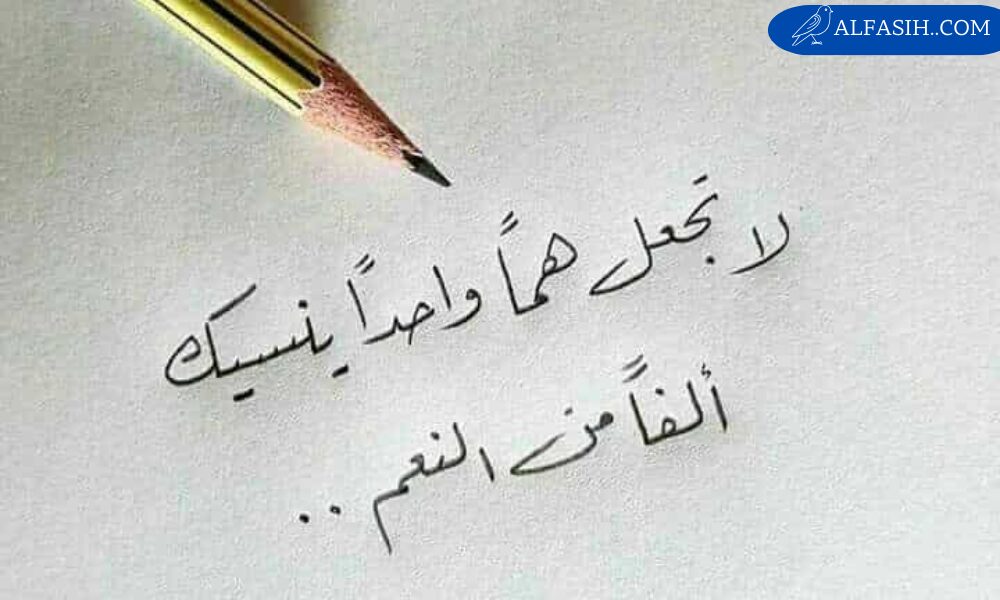 ALFASIH.COM
لا تجعل هماً واحداً ينسيك
ألفاً من النعم ..